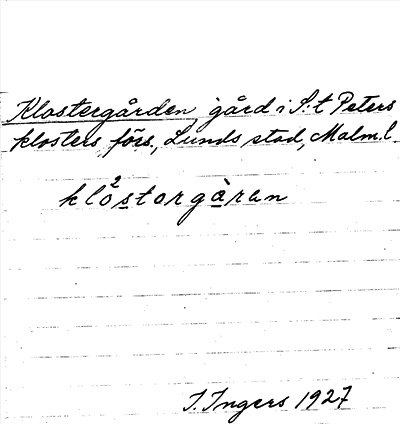 Klostergården, gård i S:t Peters
klosters förs., Lunds stad, Malm.l.
klo²storgàran
I. Ingers 1927